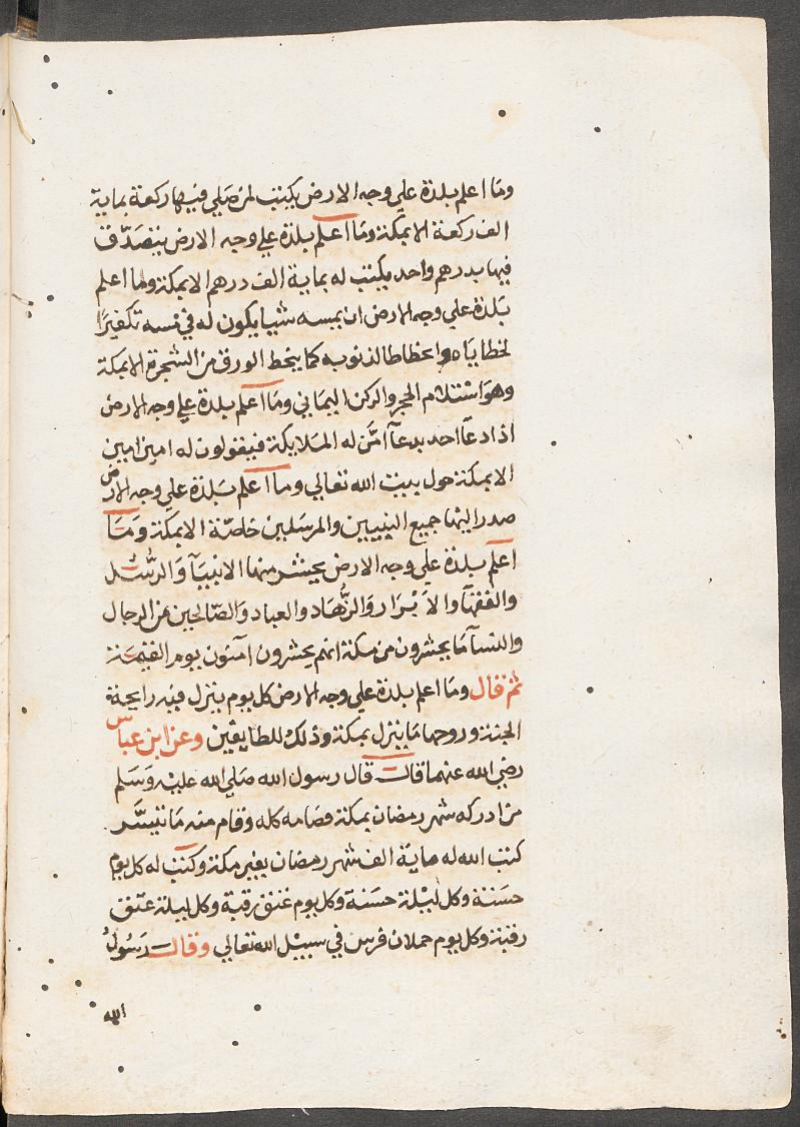 وما اعلم بلدة علي وجه الارض يكتب لمن صلي فيها ركعة بماية
الف ركعة الا بمكة وما اعلم بلدة علي وجه الارض يتصدق
فيها بدرهم واحد يكتب له بماية الف درهم الا بمكة وما اعلم
بلدة علي وجه الارض ان بمسه شيا يكون له في مسه تكفيرا
لخطاياه واحطاطا لذنوبه كما ينحط الورق من الشجرة الا بمكة
وهو استلام الحجر والركن اليماني وما اعلم بلدة علي وجه الارض
اذا دعا احد بدعآ امن له الملايكة فيقولون له امين امين
الا بمكة حول بيت الله تعالي وما اعلم بلدة علي وجه الارض
صدر اليها جميع النبيين والمرسلين خاصة الا بمكة وما
اعلم بلدة علي وجه الارض يحشر منها الانبيآ والرسل
والفقهآ والابرار والزهاد والعباد والصالحين من الرجال
والنسآ ما يحشرون من مكة انهم يحشرون امنون يوم القيمة
ثم قال وما اعلم بلدة علي وجه الارض كل يوم ينزل فيه رايحة
الجنة وروحها ما ينزل بمكة وذلك للطايفين وعن ابن عباس
رضي الله عنهما قالت قال رسول الله صلي الله عليه وسلم
من ادركه شهر رمضان بمكة فصامه كله وقام منه ما تيسر
كتب الله له ماية الف شهر رمضان بغير مكة وكتب له كل يوم
حسنة وكل ليلة حسنة وكل يوم عتق رقبة وكل ليلة عتق
رقبة وكل يوم حملان فرس في سبيل الله تعالي وقال رسول
الله